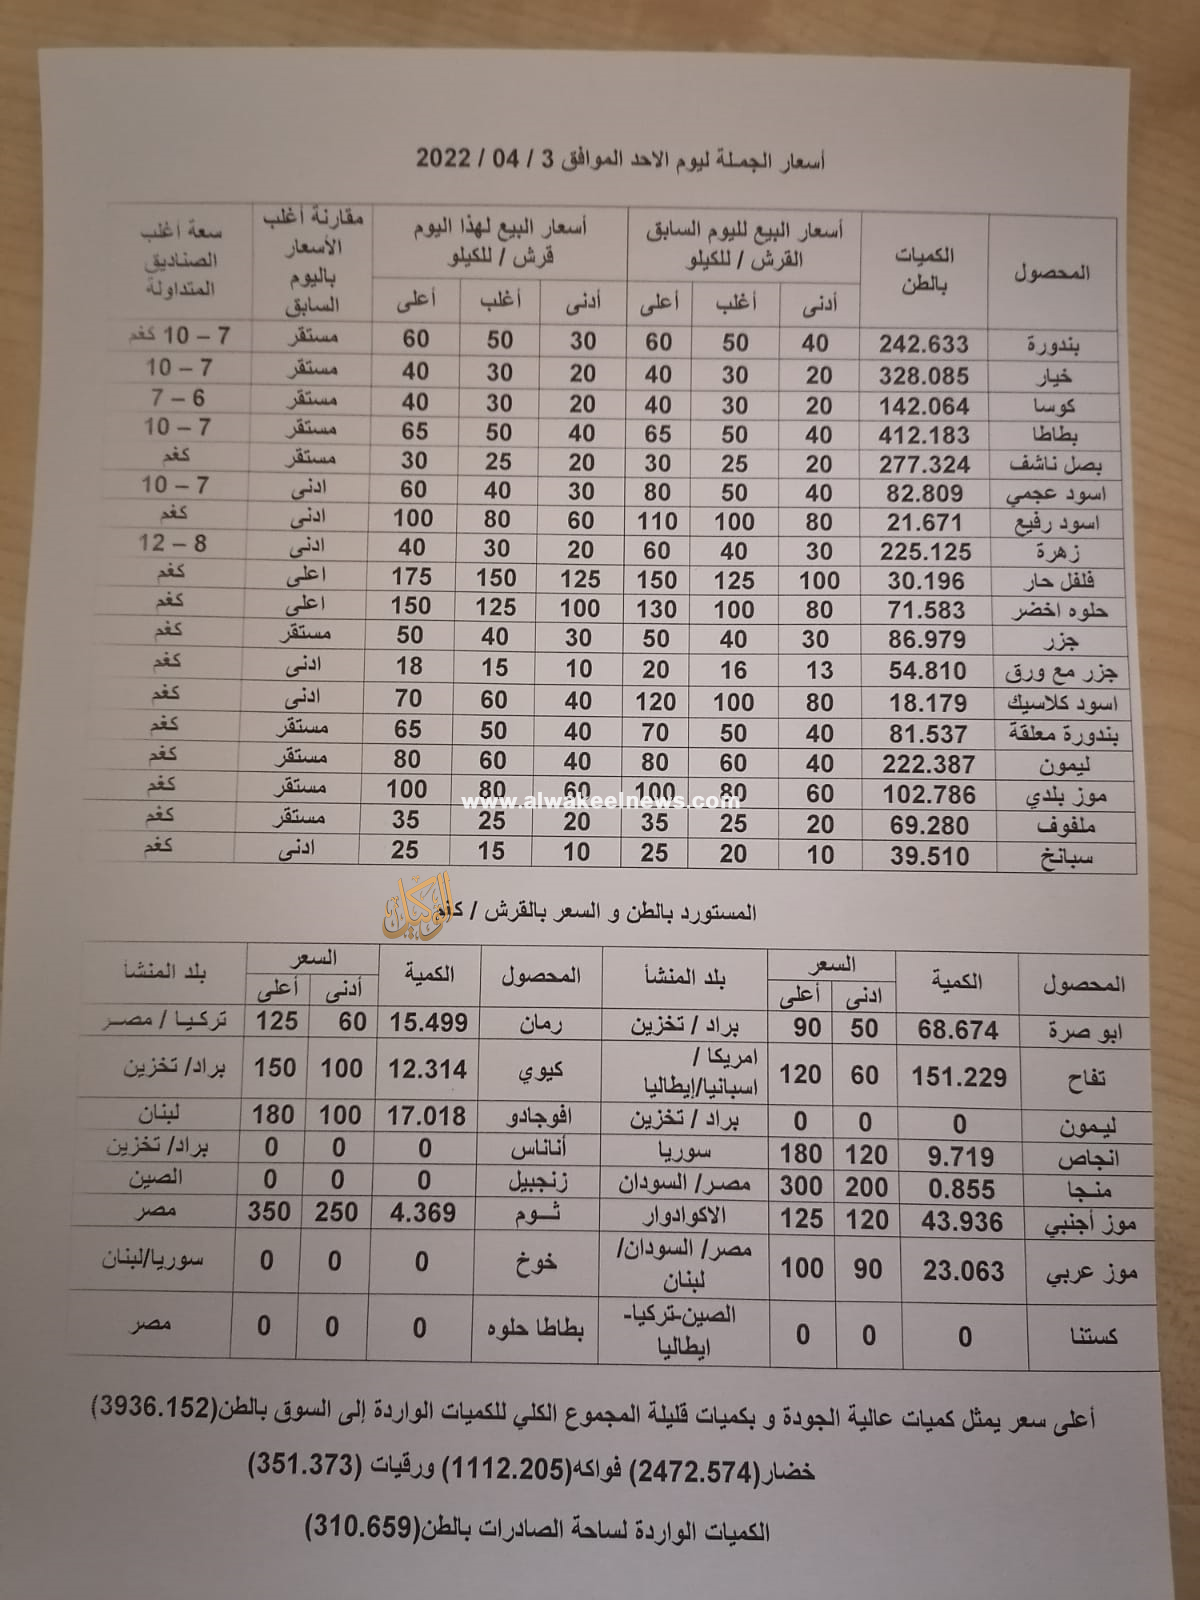 أسعار الجملة ليوم الاحد الموافق 3 / 04 / 2022
المحصول الكميات بالطن أسعار البيع لليوم السابق القرش / للكيلو أسعار البيع لهذا اليوم قرش / للكيلو مقارنة أغلب الأسعار باليوم السابق سعة أغلب الصناديق المتداولة
أدنى أغلب أعلى أدنى أغلب أعلى
بندورة 242.633 40 50 60 30 50 60 مستقر 7 – 10 كغم
خيار 328.085 20 30 40 20 30 40 مستقر 7 – 10
كوسا 142.064 20 30 40 20 30 40 مستقر 6 – 7
بطاطا 412.183 40 50 65 40 50 65 مستقر 7 – 10
بصل ناشف 277.324 20 25 30 20 25 30 مستقر كغم
اسود عجمي 82.809 40 50 80 30 40 60 ادنى 7 – 10
اسود رفيع 21.671 80 100 110 60 80 100 ادنى كغم
زهرة 225.125 30 40 60 20 30 40 ادنى 8 – 12
فلفل حار 30.196 100 125 150 125 150 175 اعلى كغم
حلوه اخضر 71.583 80 100 130 100 125 150 اعلى كغم
جزر 86.979 30 40 50 30 40 50 مستقر كغم
جزر مع ورق 54.810 13 16 20 10 15 18 ادنى كغم
اسود كلاسيك 18.179 80 100 120 40 60 70 ادنى كغم
بندورة معلقة 81.537 40 50 70 40 50 65 مستقر كغم
ليمون 222.387 40 60 80 40 60 80 مستقر كغم
موز بلدي 102.786 60 80 100 60 80 100 مستقر كغم
www.alwakeelnews.com
ملفوف 69.280 20 25 35 20 25 35 مستقر كغم
سبانخ 39.510 10 20 25 10 15 25 ادنى كغم
الوكيل
المستورد بالطن و السعر بالقرش / كغم
المحصول الكمية السعر بلد المنشأ المحصول الكمية السعر بلد المنشأ
ادنى أعلى أدنى أعلى
ابو صرة 68.674 50 90 براد / تخزين رمان 15.499 60 125 تركيا / مصر
تفاح 151.229 60 120 امريكا / اسبانيا/إيطاليا كيوي 12.314 100 150 براد/ تخزين
ليمون 0 0 0 براد / تخزين افوجادو 17.018 100 180 لبنان
انجاص 9.719 120 180 سوريا أناناس 0 0 0 براد/ تخزين
منجا 0.855 200 300 مصر/ السودان زنجبيل 0 0 0 الصين
موز أجنبي 43.936 120 125 الاكوادوار ثوم 4.369 250 350 مصر
موز عربي 23.063 90 100 مصر/ السودان/ لبنان خوخ 0 0 0 سوريا/لبنان
كستنا 0 0 0 الصين-تركيا- ايطاليا بطاطا حلوه 0 0 0 مصر
أعلى سعر يمثل كميات عالية الجودة و بكميات قليلة المجموع الكلي للكميات الواردة إلى السوق بالطن(3936.152)
خضار(2472.574) فواكه(1112.205) ورقيات (351.373)
الكميات الواردة لساحة الصادرات بالطن(310.659)